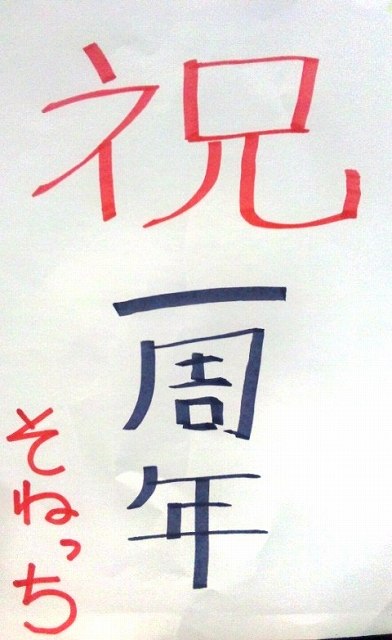 祝
一周年
そねっち